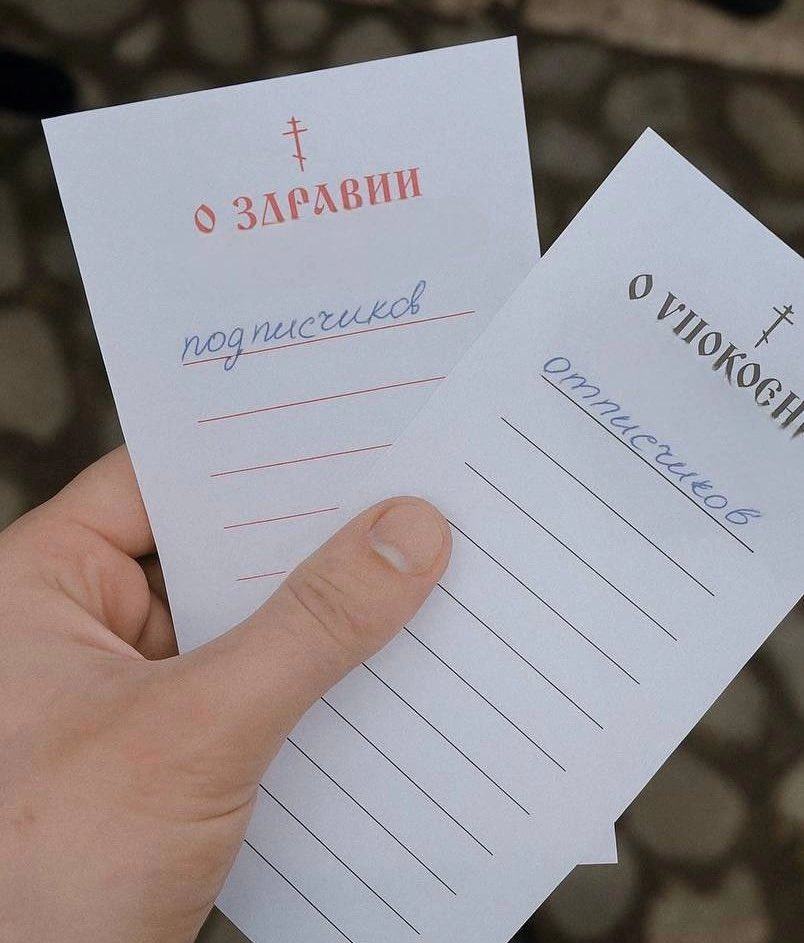 О ЗДРАВИИ
подписчиков
О УПОКОЄН
отписчиков